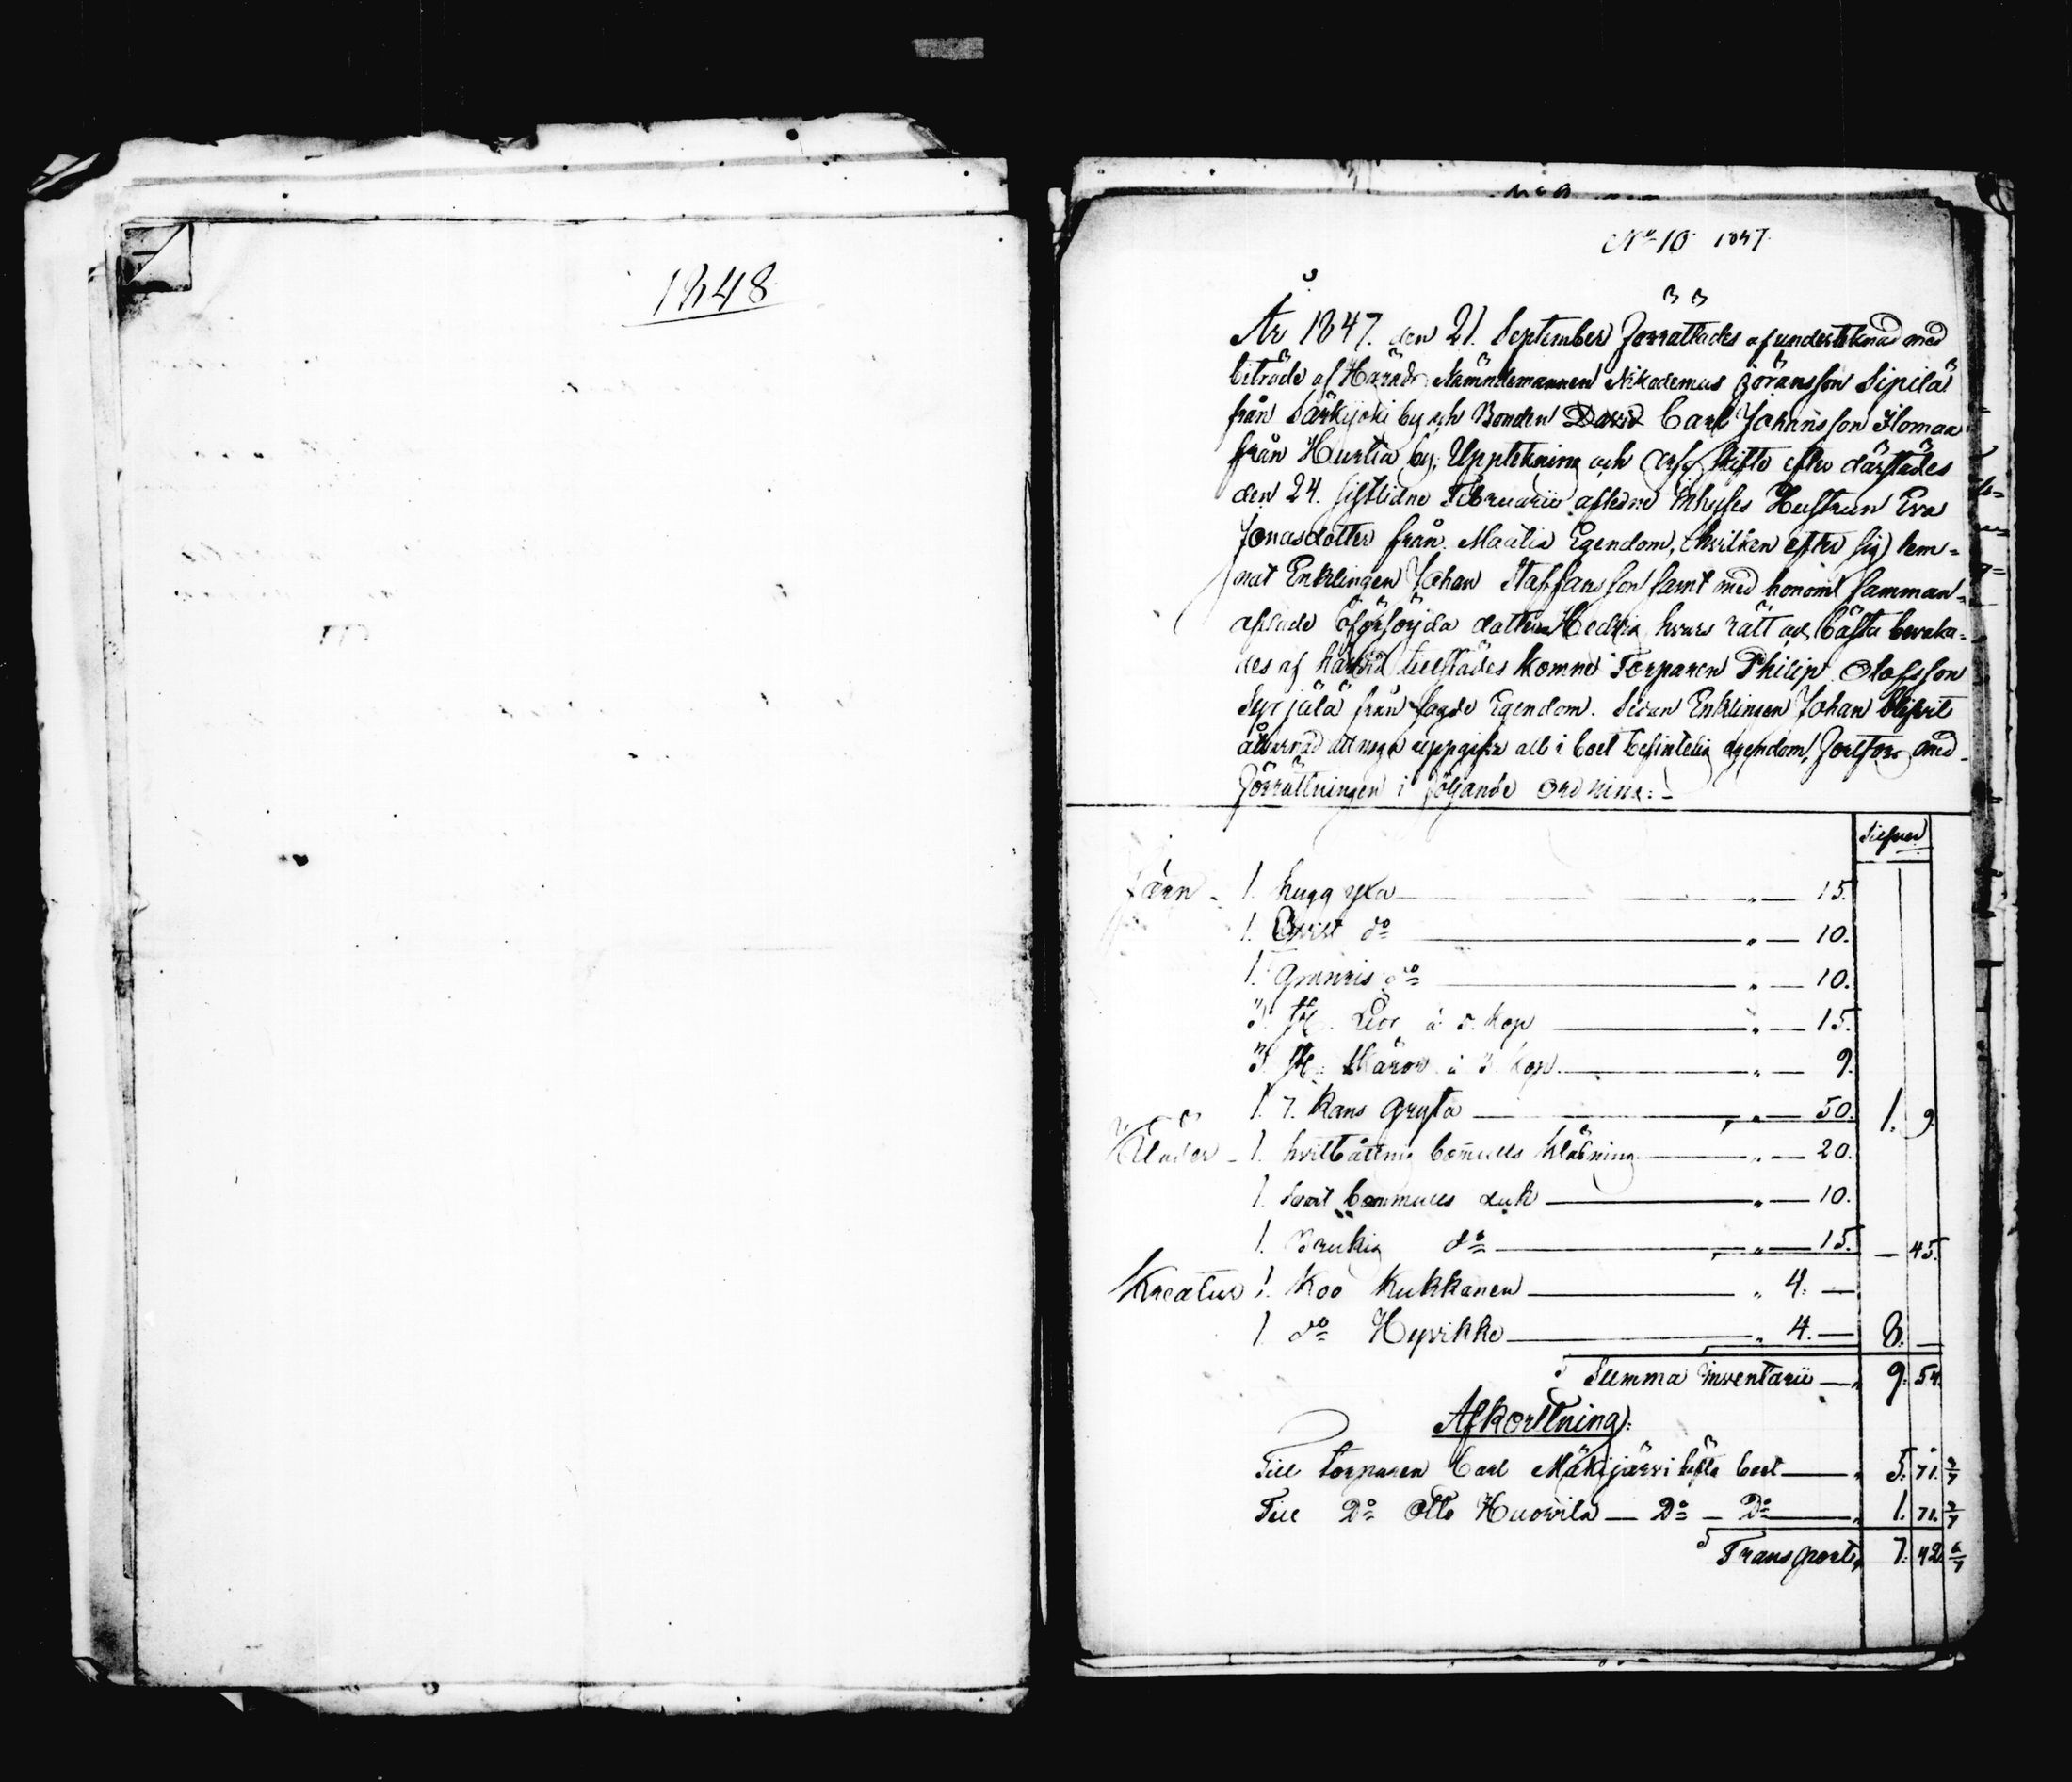 1848
No 10 1847.
År 1847. den 21. September Förrättades af undertecknad med
biträde af Härads Nämndemannen Nikodemus Göransson Sipilä
från Särkijoki by och Bonden David Carl Johansson Ilomaa
från Hurtia by, Uppteckning och Arfskifte efter därstädes
den 24. sistlidne Februarii aflidne Inhyses Hustrun Eva
Jonasdotter från Maatia Egendom, hvilken efter sig lem-
nat Enklingen Johan Staffansson samt med honom samman-
aflade oförsörjda dottern Hedvig hvars rätt och bästa bevaka-
des af härvid tillstädes komne Torparen Philip Olofsson
Syrjälä från sagde Egendom. Sedan Enklingen Johan blifvit
åtvarnad att noga uppgifva allt i boet befintelig egendom, fortfors med
Förrättningen i följande Ordning:-
Silfver
Järn - 1. hugg yxa " — 15.
1. Qvist do " — 10.
1. Granris do " — 10.
3. St. Lior à 5. kop " — 15.
3. St. Skäror à 3. kop. " — 9.
1. 7. kans gryta " — 50. 1. 9.
Kläder - 1. hvitbåttnig bomulls klädning " — 20.
1. Svart bommulls duk " — 10.
1. Brukig do " — 15. — 45.
Kreatur 1. Koo Kukkanen " 4. —
1. do Hyvikke " 4. — 8. —
Summa Inventarii — 9. 54.
Afkorttning:
Till torparen Carl Mäkijärvi häfta boet — 5. 71. 3/7
Till Do Otto Huovila — Do — Do — 1. 71. 3/7
Transport, 7. 42. 6/7